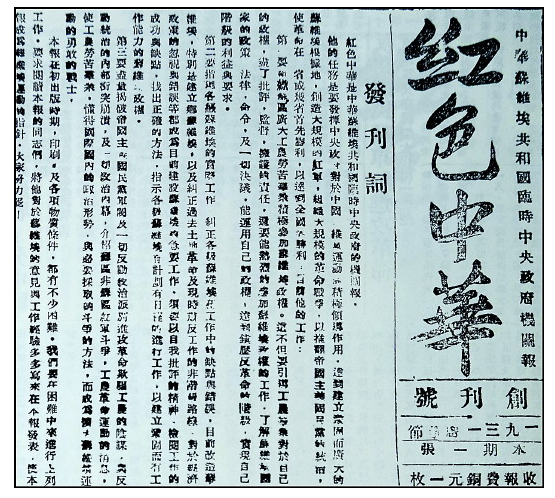 中華蘇維埃共和國臨時中央政府機關報
紅色中華
創刊號
一九三一
本期一張
收報費銅元一枚
發刊詞
紅色中華是中華蘇維埃共和國臨時中央政府的機關報
他的任務是要發揮中央政府對於中國 維埃運動的積極領導作用，達到建立鞏固而廣大的
蘇維埃根據地，創造大規模的紅軍，組織大規模的革命戰爭，以推翻帝國主義國民黨的統治，
使革命在一省或幾省首先勝利，以達到全國的勝利。目前他的工作：
第一 要組織蘇區廣大工農勞苦羣衆積極參加蘇維埃政權。這不但要引導工農羣衆對於自己
的政權，盡了批評，監督，擁護的責任，還要能熱烈的參加蘇維埃政權的工作，了解蘇維埃國
家的政策，法律，命令，及一切決議，能運用自己的政權，達到鎮壓反革命的階級，實現自己
階級的利益與要求。
第二 要指導各級蘇維埃的實際工作，糾正各級蘇維埃在工作中的缺點與錯誤。目前改造蘇
維埃，特別是建立鄉蘇維埃，以及糾正過去土地革命及現時肅反工作的非階級路線，對於經濟
政策的忽視與錯誤等都成爲目前建設蘇維埃的急要工作，須要以自我批評的精神，檢閱工作的
成功與缺點，找出正確的方法，指示各級蘇維埃有計劃有日程的進行工作，以建立鞏固而有工
作能力的蘇維埃政權。
第三 要盡量揭破帝國主義國民黨軍閥及一切反動政治派別進攻革命欺騙工農的陰謀，與反
動統治的內部衝突崩潰，及一切政治內幕，介紹蘇區非蘇區紅軍鬥爭，工農革命運動的消息，
使工農勞苦羣衆，懂得國際國內的政治形勢，與必要採取的鬥爭的方法，而成爲擴大蘇維埃運
動的勇敢的戰士。
本報在初出版時期，印刷，及各項物質條件，都有不少困難。我們要在困難中來進行上列
工作，要求閱讀本報的同志們，將他對於蘇維埃的意見與工作經驗多多寫來在本報發表，使本
報成爲蘇維埃運動的指針，大家努力吧！